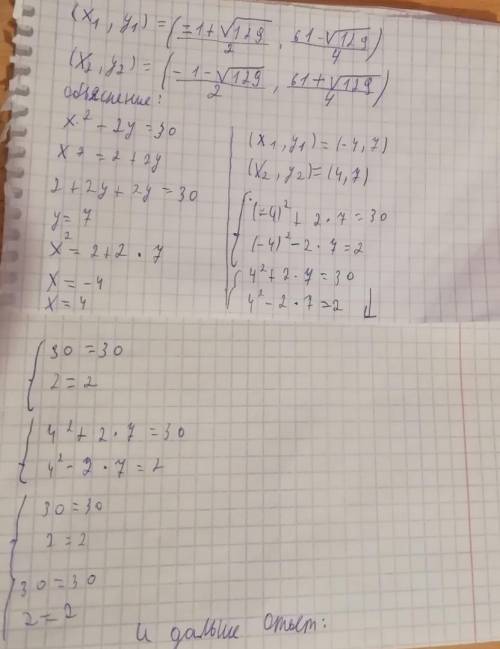 (x₁, y₁) = (=1+√129/2, 61-√129/4)
(x₂, y₂) = (-1-√129/2, 61+√129/4)
объяснение:
x² + 2y = 30
x² = 2 + 2y
2 + 2y + 2y = 30
y = 7
x² = 2 + 2 · 7
x = -4
x = 4
(x₁, y₁) = (-4, 7)
(x₂, y₂) = (4, 7)
{(-4)² + 2 · 7 = 30
(-4)² - 2 · 7 = 2
{4² + 2 · 7 = 30
4² - 2 · 7 = 2 ↓
{30 = 30
2 = 2
{4² + 2 · 7 = 30
4² - 2 · 7 = 2
{30 = 30
2 = 2
30 = 30
2 = 2
и дальше ответ: